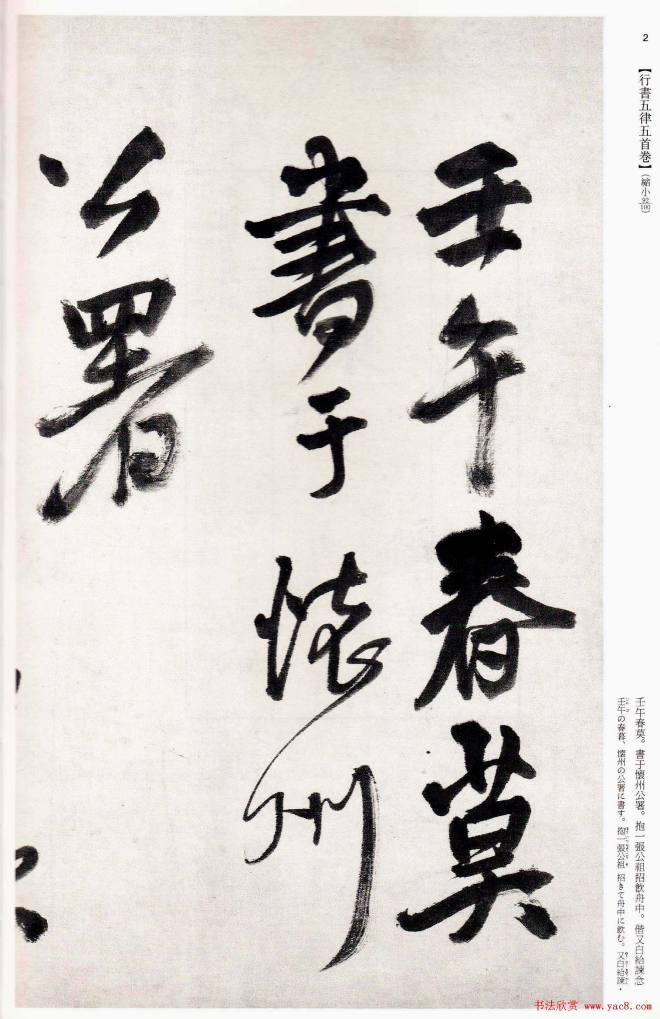 2
【行書五律五首卷】（縮小92/100）
壬午春莫
書于懷州
公署
壬午春莫。書于懷州公署。抱一張公祖招飲舟中。偕又白給諫念
壬午の春暮、懷州の公署に書す。抱一張公祖 招きて舟中に飲む。又白給諫・
书法欣赏 www.yac8.com